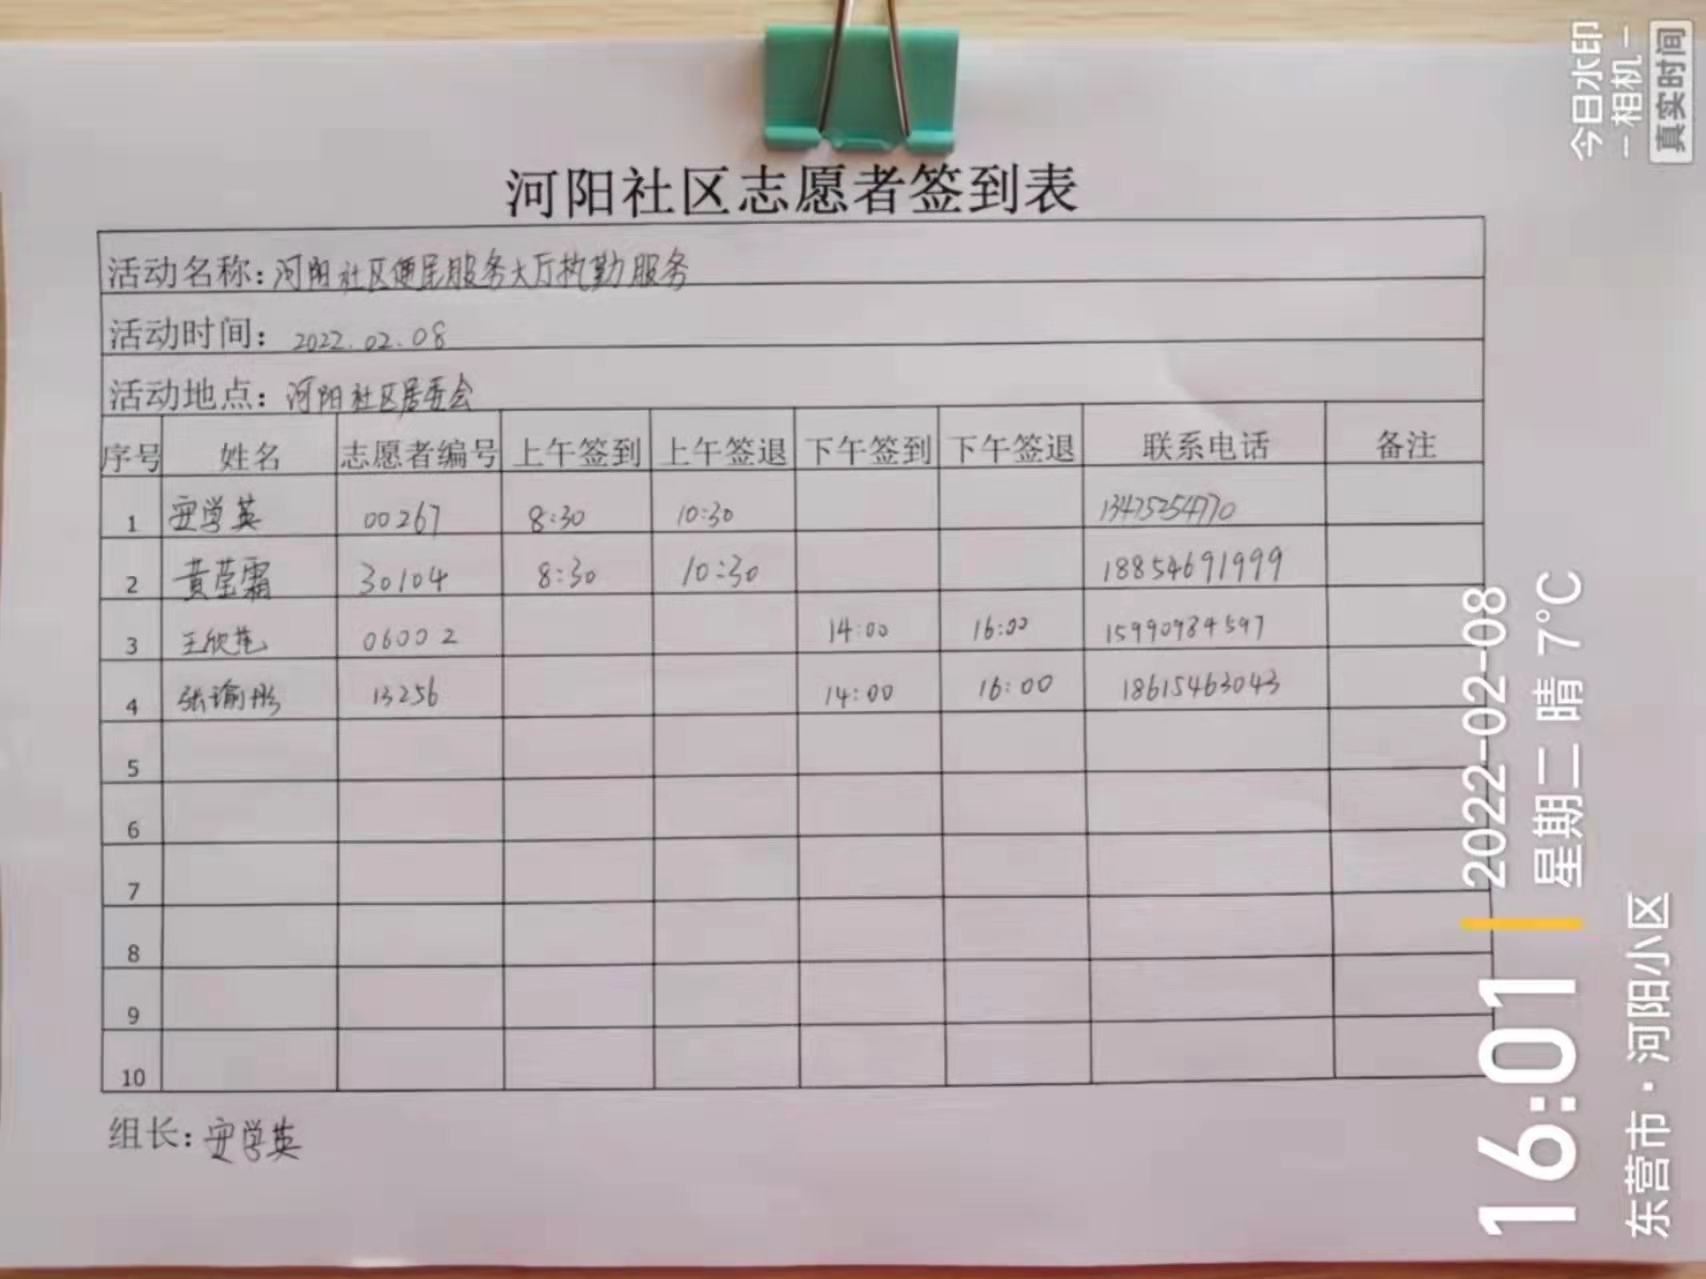 河阳社区志愿者签到表
活动名称：河阳社区便民服务大厅执勤服务
活动时间：2022.02.08
活动地点：河阳社区居委会
序号 姓名 志愿者编号 上午签到 上午签退 下午签到 下午签退 联系电话 备注
1 安学英 00267 8:30 10:30 13475254770
2 黄莹霜 30104 8:30 10:30 18854691999
3 王欣苑 06002 14:00 16:00 15990984597
4 张瑜彤 13256 14:00 16:00 18615463043
5
6
7
8
9
10
组长：安学英
今日水印
-相机-
真实时间
16:01
2022-02-08
星期二 晴 7℃
东营市·河阳小区